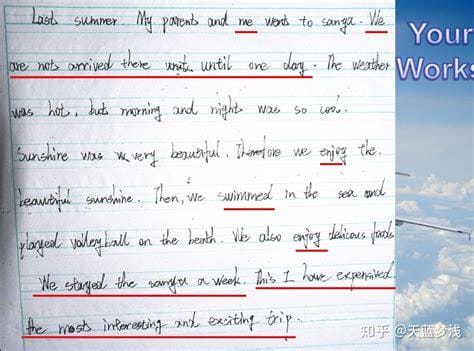 Last summer. My parents and me went to sanya. We
are not arrived there until one day. The weather
was hot, but morning and night was so cool.
Sunshine was very beautiful. Therefore we enjoy the
beautiful sunshine. Then, we swimmed in the sea and
played valleyball on the beath. We also enjoy delicous foods
We stayed the sanya a week. This I have expensived
the mosts interesting and exciting trip.
Your
Works
知乎 @天蓝梦浅